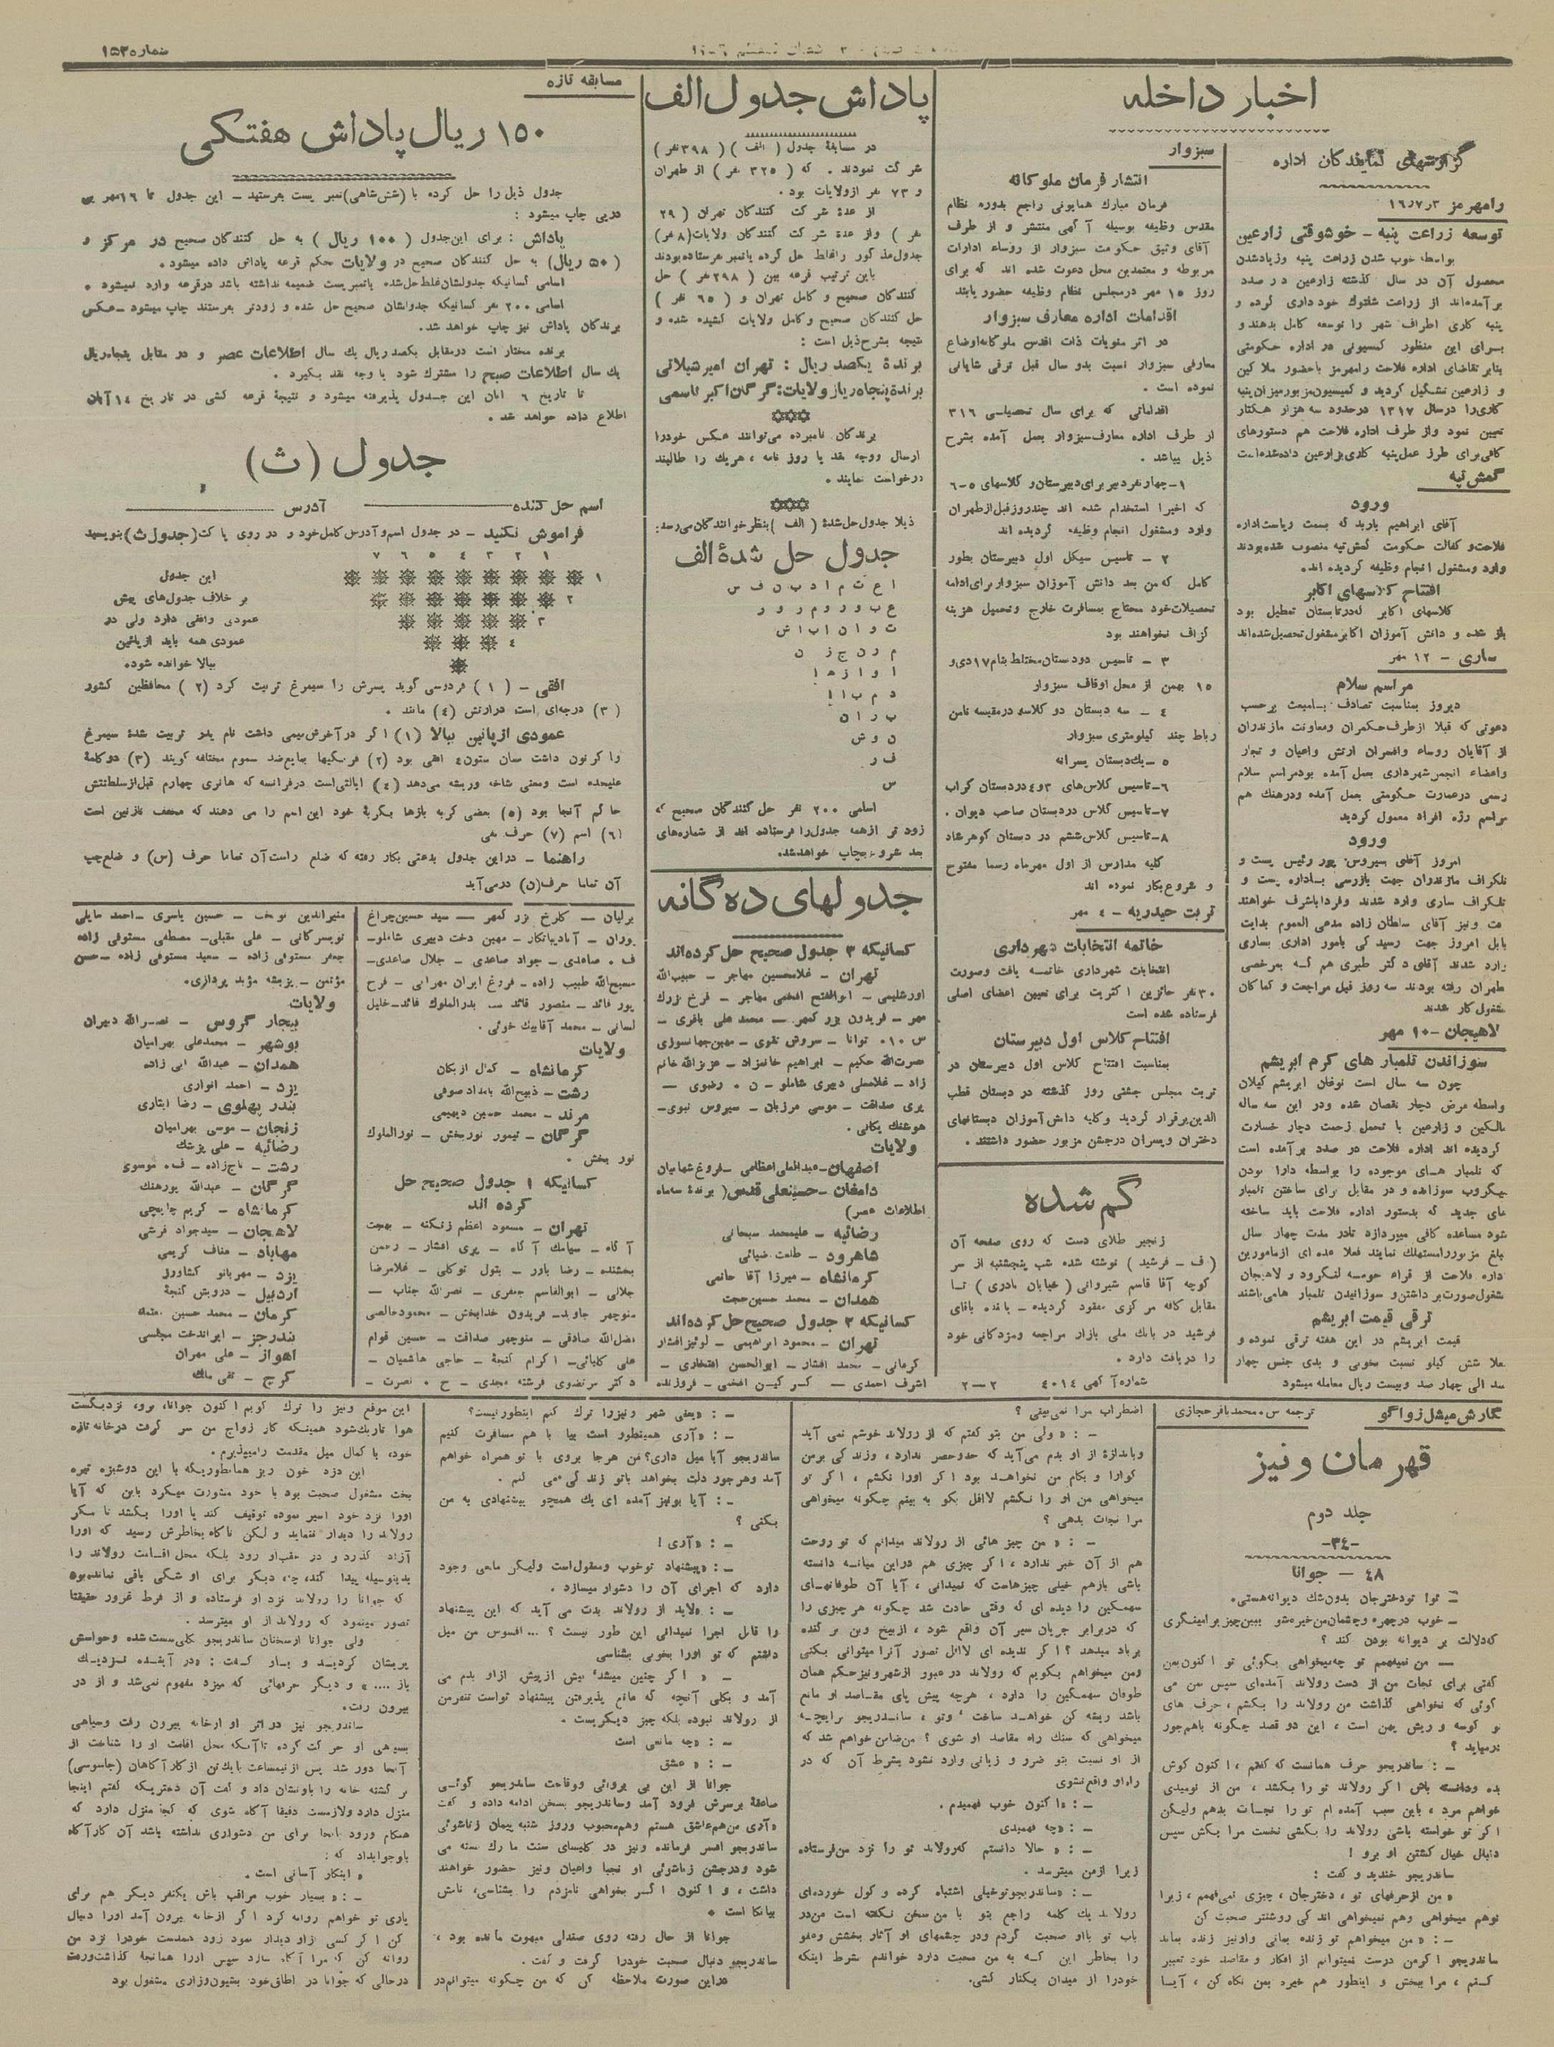 شماره ۱۵۳
اخبار داخله
گزارشهای نمایندگان اداره
رامهرمز ۱۶٫۷٫۳
توسعه زراعت پنبه - خوشوقتی زارعین
بواسطه خوب شدن زراعت پنبه وزیادشدن
محصول آن در سال گذشته زارعین در صدد
برآمده‌اند از زراعت شلتوك خود داری کرده و
پنبه کاری اطراف شهر را توسعه کامل بدهند و
برای این منظور کمیسیونی در اداره حکومتی
بنابر تقاضای اداره فلاحت رامهرمز باحضور ملا کین
و زارعین تشکیل گردید و کمیسیون مزبور میزان پنبه
کاری را درسال ۱۳۱۷ درحدود سه هزار هکتار
تعیین نمود واز طرف اداره فلاحت هم دستورهای
کافی برای طرز عمل پنبه کاری بزارعین داده‌شده‌است
گمش تپه
ورود
آقای ابراهیم باربد که بسمت ریاست اداره
فلاحت و کفالت حکومت گمش تپه منصوب شده بودند
وارد ومشغول انجام وظیفه گردیده اند.
افتتاح کلاسهای اکابر
کلاسهای اکابر که در تابستان تعطیل بود
باز شده و دانش آموزان اکابر مشغول تحصیل شده‌اند
ساری - ۱۲ مهر
مراسم سلام
دیروز بمناسبت تصادف بامبعث برحسب
دعوتی که قبلا از طرف حکمران ومعاونت مازندران
از آقایان روساء وافسران ارتش واعیان و تجار
واعضاء انجمن شهرداری بعمل آمده بود مراسم سلام
رسمی درعمارت حکومتی بعمل آمده ودرهنك هم
مراسم رژه افراد معمول گردید
ورود
امروز آقای سیروس پور رئیس پست و
تلگراف مازندران جهت بازرسی باداره پست و
تلگراف ساری وارد شدند وفردا باشرف خواهند
رفت ونیز آقای سلطان زاده مدعی العموم بدایت
بابل امروز جهت رسیدگی بامور اداری بساری
وارد شدند آقای دکتر طبری هم که بمرخصی
طهران رفته بودند سه روز قبل مراجعت و کماکان
مشغول کار شدند
لاهیجان - ۱۰ مهر
سوزاندن تلمبار های کرم ابریشم
چون سه سال است نوغان ابریشم گیلان
بواسطه مرض دچار نقصان شده ودر این سه ساله
مالکین و زارعین با تحمل زحمت دچار خسارت
گردیده اند اداره فلاحت در صدد بر آمده است
که تلمبار های موجوده را بواسطه دارا بودن
میکروب سوزانده و در مقابل برای ساختن تلمبار
های جدید که بدستور اداره فلاحت باید ساخته
شود مساعده کافی میپردازد تادر مدت چهار سال
ترقی قیمت ابریشم
قیمت ابریشم در این هفته ترقی نموده و
فعلا شش کیلو نسبت بخوبی و بدی جنس چهار
صد الی چهار صد وبیست ریال معامله میشود
سبزوار
انتشار فرمان ملوکانه
فرمان مبارك همایونی راجع بدوره نظام
مقدس وظیفه بوسیله آگهی منتشر و از طرف
آقای وثیق حکومت سبزوار از روساء ادارات
مربوطه و معتمدین محل دعوت شده اند که برای
روز ۱۵ مهر در مجلس نظام وظیفه حضور یابند
اقدامات اداره معارف سبزوار
در اثر منویات ذات اقدس ملوکانه اوضاع
معارفی سبزوار نسبت بدو سال قبل ترقی شایانی
نموده است .
اقداماتی که برای سال تحصیلی ۳۱۶
از طرف اداره معارف سبزوار بعمل آمده بشرح
ذیل میباشد .
۱- چهار نفر دبیر برای دبیرستان و کلاسهای ۵-۶
که اخیرا استخدام شده اند چند روز قبل از طهران
وارد ومشغول انجام وظیفه گردیده اند
۲ - تاسیس سیکل اول دبیرستان بطور
کامل که من بعد دانش آموزان سبزوار برای ادامه
تحصیلات خود محتاج بمسافرت خارج و تحمیل هزینه
گزاف نخواهند بود
۳ - تاسیس دو دبستان مختلط بنام ۱۷ دی و
۱۵ بهمن از محل اوقاف سبزوار
۴ - سه دبستان دو کلاسه در مقیسه نامن
رباط چند کیلومتری سبزوار
۵ - یك دبستان پسرانه
۶- تاسیس کلاس‌های ۳و۴ در دبستان گراب
۷- تاسیس کلاس در دبستان صاحب دیوان .
۸- تاسیس کلاس ششم در دبستان گوهرشاد
کلیه مدارس از اول مهرماه رسما مفتوح
و شروع بکار نموده اند
تربت حیدریه - ۴ مهر
خاتمه انتخابات شهرداری
انتخابات شهرداری خاتمه یافت وصورت
۳۰ نفر حائزین اکثریت برای تعیین اعضای اصلی
فرستاده شده است
افتتاح کلاس اول دبیرستان
بمناسبت افتتاح کلاس اول دبیرستان در
تربت مجلس جشنی روز گذشته در دبستان قطب
الدین برقرار گردید وکلیه دانش آموزان دبستانهای
دختران وپسران درجشن مزبور حضور داشتند .
گم شده
زنجیر طلای دست که روی صفحه آن
( ف - فرشید ) نوشته شده شب پنجشنبه از سر
کوچه آقا قاسم شیروانی ( خیابان نادری ) تا
مقابل کافه مرکزی مفقود گردیده - یابنده باقای
فرشید در بانك ملی بازار مراجعه ومژدگانی خود
را دریافت دارد .
شماره آگهی ۴۰۱۴ ۲-۲
پاداش جدول الف
در مسابقهٔ جدول ( الف ) ( ۳۹۸ نفر )
شرکت نمودند . که ( ۳۲۵ نفر ) از طهران
و ۷۳ نفر از ولایات بود .
از عدهٔ شرکت کنندگان تهران ( ۲۹
نفر ) واز عدهٔ شرکت کنندگان ولایات (۸ نفر)
جدول مذکور را غلط حل کرده یا تمبر نفرستاده بودند
باین ترتیب قرعه بین ( ۲۹۸ نفر ) حل
کنندگان صحیح و کامل تهران و ( ۶۵ نفر )
حل کنندگان صحیح وکامل ولایات کشیده شده و
نتیجه بشرح ذیل است :
برندهٔ یکصد ریال : تهران امیر شیلاتی
برندهٔ پنجاه ریاز ولایات: گرگان اکبر قاسمی
برندگان نامبرده می‌توانند عکس خود را
ارسال ووجه نقد یا روز نامه ، هریك را طالبند
درخواست نمایند .
ذیلا جدول حل شدهٔ ( الف ) بنظر خوانندگان می‌رسد:
جدول حل شدهٔ الف
ا ع ت م ا د ب ن ف س
ع ب و ر و م ر و ر
ت و ا ن ا ب ا ش
م ر ن ج ز ن
ا و ا ز ه ا
د م ب ا ا
ب ر ا ن
ن و ش
ف ر
س
اسامی ۲۰۰ نفر حل کنندگان صحیح که
زود تر از همه جدول را فرستاده اند از شماره‌های
بعد شروع بچاپ خواهد شد.
جدولهای ده گانه
کسانیکه ۳ جدول صحیح حل کرده‌اند
تهران - غلامحسین مهاجر - حبیب الله
اورشلیمی - ابوالفتح افخمی مهاجر - فرخ بزرك
مهر - فریدون بزرگمهر - محمد علی باقری -
س ۰۱۰ توانا - سروش تقوی - مهین جهانسوزی
نصرت‌الله حکیم - ابراهیم خانمزاد - عزیزالله خانم
زاد - غلامعلی دبیری شاملو - ن . رضوی -
پری صداقت - موسی مرزبان - سیروس نبوی-
هوشنك یکانی.
ولایات
اصفهان - عبدالعلی اعظامی - فروغ شهامیان
دامغان - حسینعلی قدس ( برندهٔ سه ماه
اطلاعات عصر)
رضائیه - علیمحمد سبحانی
شاهرود - طلعت ضیائی
کرمانشاه - میرزا آقا حاتمی
همدان - محمد حسین حجت
کسانیکه ۲ جدول صحیح حل کرده‌اند
تهران - محمود ابراهیمی - لوئیز افشار
کرمانی - محمد افشار - ابوالحسن افتخاری -
مسابقه تازه
۱۵۰ ریال پاداش هفتگی
جدول ذیل را حل کرده با (شش شاهی) تمبر پست بفرستید - این جدول تا ۱۶ مهر پی
درپی چاپ میشود :
پاداش : برای این جدول ( ۱۰۰ ریال ) به حل کنندگان صحیح در مرکز و
( ۵۰ ریال ) به حل کنندگان صحیح در ولایات بحکم قرعه پاداش داده میشود.
اسامی کسانیکه جدولشان غلط حل شده یا تمبر پست ضمیمه نداشته باشد در قرعه وارد نمیشود .
اسامی ۲۰۰ نفر کسانیکه جدولشان صحیح حل شده و زودتر بفرستند چاپ میشود - عکس
برندگان پاداش نیز چاپ خواهد شد.
برنده مختار است در مقابل یکصد ریال یك سال اطلاعات عصر و در مقابل پنجاه ریال
یك سال اطلاعات صبح را مشترك شود یا وجه نقد بگیرد .
تا تاریخ ۶ ابان این جدول پذیرفته میشود و نتیجهٔ قرعه کشی در تاریخ ۱۴ آبان
اطلاع داده خواهد شد .
جدول (ث)
اسم حل کننده آدرس
فراموش نکنید - در جدول اسم و آدرس کامل خود و در روی پاکت (جدول ث) بنویسید
۱ ۲ ۳ ۴ ۵ ۶ ۷
۱
۲
۳
۴
این جدول
بر خلاف جدول‌های پیش
عمودی وافقی دارد ولی در
عمودی همه باید از پائین
ببالا خوانده شود.
افقی - ( ۱ ) فردوسی گوید پسرش را سیمرغ تربیت کرد ( ۲ ) محافظین کشور
( ۳ ) درجه‌ای است در ارتش (۴) مانند .
عمودی از پائین ببالا (۱) اگر در آخرش میمی داشت نام پدر تربیت شدهٔ سیمرغ
(۲) فرنگیها بمایع ضد سموم مختلفه گویند (۳) دو کلمهٔ
علیحده است ومعنی شاخه وریشه می‌دهد (۴) ایالتی است در فرانسه که هانری چهارم قبل از سلطنتش
حاکم آنجا بود (۵) بعضی گربه بازها بگربهٔ خود این اسم را می دهند که مخفف نازنین است
(۶) اسم (۷) حرف نفی
راهنما - در این جدول بدعتی بکار رفته که ضلع راست آن تماما حرف (س) و ضلع چپ
آن تماما حرف(ن) در می‌آید
ولایات
کرمانشاه - کمال ازبکان
رشت - ذبیح‌الله بامداد صوفی
مرند - محمد حسین دیهیمی
گرگان - تیمور نوربخش - نورالملوك
نور بخش .
کسانیکه ۱ جدول صحیح حل
کرده اند
تهران - مسعود اعظم زنگنه - بهجت
آگاه - سیامك آگاه - پری افشار - رحمن
بخشنده - رضا باور - بتول توکلی - غلامرضا
جلالی - ابوالقاسم جعفری - نصرالله جناب -
منوچهر جاوید - فریدون خدابخش - محمود خالصی
فضل‌الله صادقی - منوچهر صداقت - حسین قوام
علی کابائی - اکرام گنجهٔ - حاجی هاشمیان -
ولایات
بیجار گروس - نصرالله دبیران
بوشهر - محمدعلی بهرامیان
همدان - عبدالله ابی زاده
یزد - احمد انواری
بندر پهلوی - رضا ایثاری
زنجان - موسی بهرامیان
رضائیه - علی پزشك
رشت - تاج‌زاده - ف. موسوی
گرگان - عبدالله پورهنك
کرمانشاه - کریم چایچی
لاهیجان - سید جواد قرشی
مهاباد - مناف کریمی
یزد - مهربانو کشاورز
اردبیل - درویش گنجهٔ
کرمان - محمد حسین
بندرجز - ایراندخت مجلسی
اهواز - علی مهران
کرج - تقی مالك
نگارش میشل زواگو
ترجمه س. محمد باقر حجازی
قهرمان ونیز
جلد دوم
-۳۴-
۴۸ - جوانا
- تو! تو دختر جان بدون شك دیوانه هستی.
- خوب در چهره وچشمان من خیره شو ببین چیز برامینگری
که دلالت بر دیوانه بودن کند ؟
- من نمیفهمم تو چه میخواهی بگوئی تو اکنون بمن
گفتی برای نجات من از دست رولاند آمده‌ای سپس بمن می
گوئی که نخواهی گذاشت من رولاند را بکشم ، حرف های
تو کوسه و ریش پهن است ، این دو قصد چگونه باهم جور
درمیاید ؟
- : ساندریجو حرف همانست که گفتم ، اکنون گوش
بده ودانسته باش اگر رولاند تو را بکشد ، من از نومیدی
خواهم مرد ، باین سبب آمده ام تو را نجات بدهم ولیکن
اگر تو خواسته باشی رولاند را بکشی نخست مرا بکش سپس
دنبال خیال کشتن او برو !
ساندریجو خندید و گفت :
« من از حرفهای تو ، دختر جان ، چیزی نمی‌فهمم ، زیرا
توهم میخواهی وهم نمیخواهی اندکی روشنتر صحبت کن
- : « من میخواهم تو زنده بمانی واو نیز زنده بماند
ساندریجو اگر من درست نمیتوانم از افکار و مقاصد خود تعبیر
کنم ، مرا ببخش و اینطور هم خیره بمن نگاه کن ، آیا
اضطراب مرا نمی‌بینی ؟
- : « ولی من بتو گفتم که از رولاند خوشم نمی آید
وباندازهٔ از او بدم می‌آید که حدوحصر ندارد ، وزندگی برمن
گوارا و بکام من نخواهد بود اگر اورا نکشم ، اگر تو
میخواهی من او را نکشم لااقل بگو به بینم چگونه میخواهی
مرا نجات بدهی ؟
- : « من چیز هائی از رولاند میدانم که تو روحت
هم از آن خبر ندارد ، اگر چیزی هم در این میانه دانسته
باشی بازهم خیلی چیزهاست که نمیدانی ، آیا آن طوفانهای
سهمگین را دیده ای که وقتی حادث شد چگونه هر چیزی را
که در برابر جریان سیر آن واقع شود ، از بیخ وبن بر کنده
برباد میدهد ؟ اگر ندیده ای لااقل تصور آنرا میتوانی بکنی
ومن میخواهم بگویم که رولاند در عبور از شهر ونیز حکم همان
طوفان سهمگین را دارد ، هرچه پیش پای مقاصد او مانع
باشد ریشه کن خواهد ساخت ، وتو ، ساندریجو برای چه
میخواهی که سنك راه مقاصد او شوی ؟ من ضامن خواهم شد که
از او نسبت بتو ضرر و زیانی وارد نشود بشرط آن که در
راه او واقع نشوی
- : « اکنون خوب فهمیدم .
- : « چه فهمیدی
- : « حالا دانستم که رولاند تو را نزد من فرستاده
زیرا ازمن میترسد .
- : « ساندریجو تو خیلی اشتباه کرده و گول خورده‌ای
رولاند یك کلمه راجع بتو با من سخن نگفته است من در
باب تو با او صحبت کردم ودر چشمهای او آثار بخشش وعفو
را بخاطر این که به من محبت دارد خواندم بشرط اینکه
خود را از میدان بکنار کشی.
- : « یعنی شهر ونیز را ترك کنم اینطور نیست؟
- : « آری همینطور است بیا با هم مسافرت کنیم
ساندریجو آیا میل داری؟ من هرجا بروی با تو همراه خواهم
آمد وهرجور دلت بخواهد باتو زندگی می کنم .
- : آیا بونیز آمده ای یك همچو پیشنهادی به من
بکنی ؟
- : « آری !
- : « پیشنهاد تو خوب ومعقول است ولیکن مانعی وجود
دارد که اجرای آن را دشوار میسازد .
- : « لابد از رولاند بدت می آید که این پیشنهاد
را قابل اجرا نمیدانی این طور نیست ؟ ... افسوس من میل
داشتم که تو اورا بخوبی بشناسی
- : « اگر چنین میشد، بیش از پیش از او بدم می
آمد و بکلی آنچه که مانع پذیرفتن پیشنهاد تو است تنفر من
از رولاند نبوده بلکه چیز دیگریست .
- : « چه مانعی است
- : « عشق
جوانا از این بی پروائی ووقاحت ساندریجو گوئی
صاعقهٔ برسرش فرود آمد وساندریجو بسخن ادامه داده و گفت
« آری من هم عاشق هستم وهم محبوب وروز شنبه پیمان زناشوئی
ساندریجو افسر فرمانده ونیز در کلیسای سنت مارك بسته می
شود ودر جشن زناشوئی او نجبا واعیان ونیز حضور خواهند
داشت ، و اکنون اگر بخواهی نامزدم را بشناسی، نامش
بیانکا است .
جوانا از حال رفته روی صندلی مبهوت مانده بود ،
ساندریجو دنبال صحبت خود را گرفت و گفت.
« در این صورت ملاحظه کن که من چگونه میتوانم در
این موقع ونیز را ترك گویم اکنون جوانا، برو، نزدیکست
هوا تاریك شود همینکه کار زواج من سر گرفت در خانه تازه
خود، با کمال میل مقدمت را میپذیرم .
این دزد خون ریز همانطوریکه با این دوشیزه تیره
بخت مشغول صحبت بود با خود مشورت میکرد باین که آیا
اورا نزد خود اسیر نموده توقیف کند یا اورا بکشد تا مگر
رولاند را دیدار ننماید و لکن ناگاه بخاطرش رسید که اورا
آزاد گذارد و در عقب او رود بلکه محل اقامت رولاند را
بدینوسیله پیدا کند، چه دیگر برای او شکی باقی نمانده بود
که جوانا را رولاند نزد او فرستاده و از فرط غرور حقیقتا
تصور مینمود که رولاند از او میترسد .
ولی جوانا از سخنان ساندریجو بکلی سست شده وحواسش
پریشان گردید و باو گفت : « در آینده نزدیك
باز .... » و دیگر حرفهائی که میزد مفهوم نمی‌شد و از در
بیرون رفت.
ساندریجو نیز در اثر او از خانه بیرون رفت وسیاهی
بسیاهی او حرکت کرده تا آنکه محل اقامت او را شناخت از
آنجا دور شد پس از نیمساعت با یك تن از کارآگاهان (جاسوسی)
بر گشته خانه را باو نشان داد و گفت آن دختریکه گفتم اینجا
منزل دارد ولازمست دقیقا آگاه شوی که کجا منزل دارد که
هنگام ورود بانجا برای من دشواری نداشته باشد آن کارآگاه
باو جوابداد که :
« اینکار آسانی است .
- : « بسیار خوب مراقب باش یکنفر دیگر هم برای
یاری تو خواهم روانه کرد اگر از خانه بیرون آمد اورا دنبال
کن اگر کسی از او دیدار نمود زود همدست خود را نزد من
درحالی که جوانا در اطاق خود بشیون وزاری مشغول بود